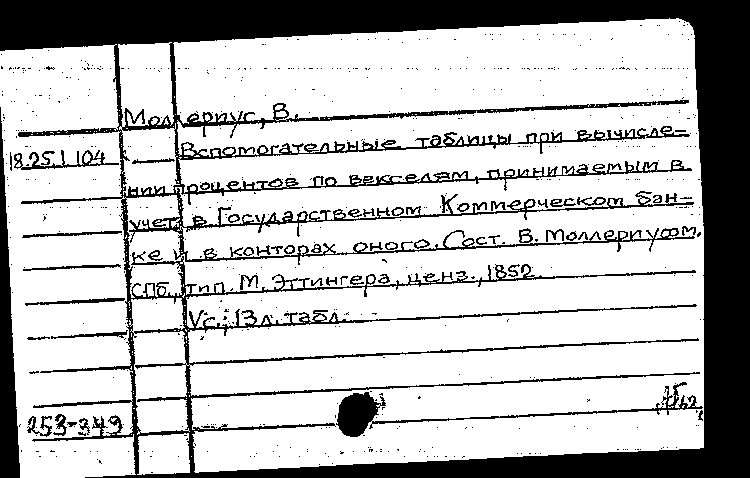 Моллериус, В.
18.25.1.104 Вспомогательные таблицы при вычисле-
нии процентов по векселям, принимаемым в
учет в Государственном Коммерческом бан-
ке и в конторах оного. Сост. В. Моллериусом.
СПб., тип. М. Эттингера, ценз., 1852.
Vс.; 13 л. табл.
253-349